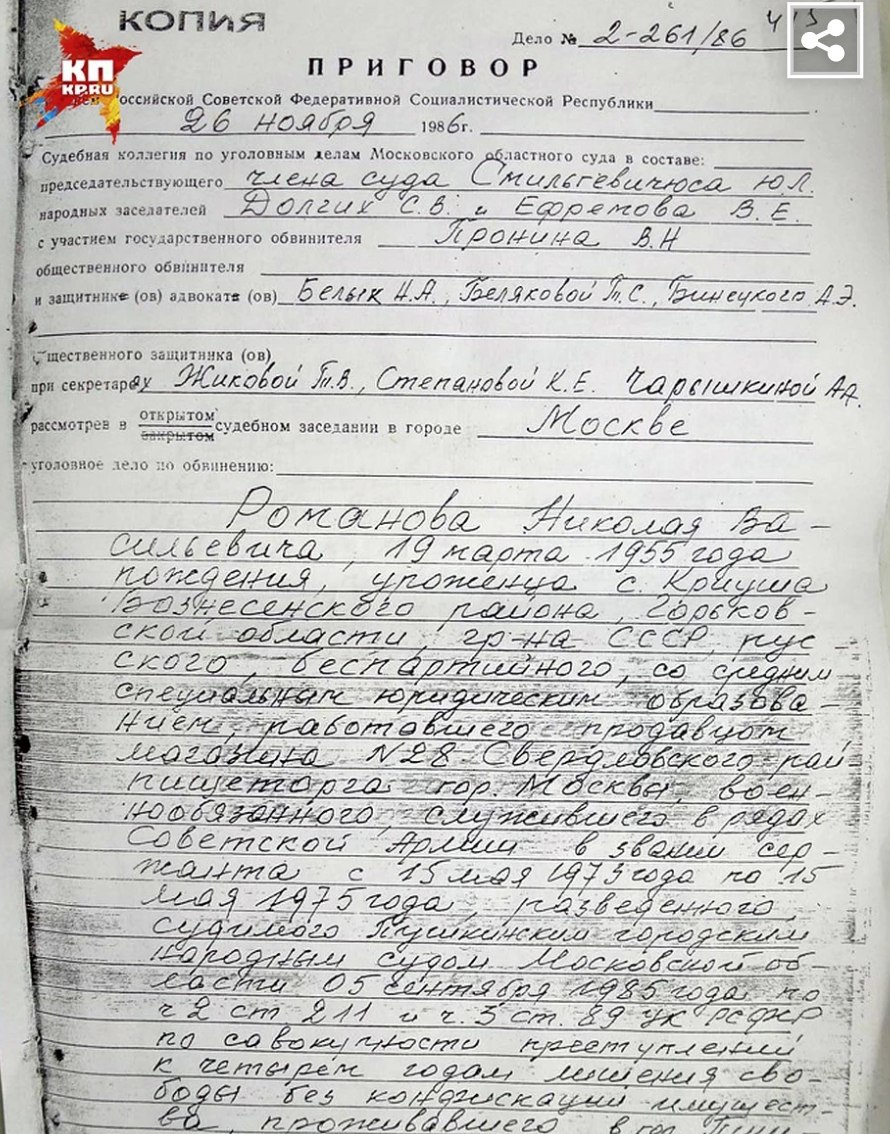 КОПИЯ
Дело № 2-261/86
КП
KP.RU
ПРИГОВОР
Российской Советской Федеративной Социалистической Республики
26 ноября 1986г.
Судебная коллегия по уголовным делам Московского областного суда в составе:
председательствующего члена суда Смильгевичюса Ю.Л.
народных заседателей Долгих С.В. и Ефремова В.Е.
с участием государственного обвинителя Пронина В.Н
общественного обвинителя
и защитнике (ов) адвоката (ов) Белык Н.А., Беляковой Т.С., Бинецкого А.Э.
щественного защитника (ов)
при секретарях Жиковой Т.В., Степановой К.Е. Чарышкиной А.А.
открытом
рассмотрев в закрытом судебном заседании в городе Москве
уголовное дело по обвинению:
Романова Николая Ва-
сильевича, 19 марта 1955 года
рождения, уроженца с. Криуша
Вознесенского района, Горьков-
ской области, гр-на СССР, рус
ского, беспартийного, со средним
специальным юридическим образова-
нием, работавшего продавцом
магазина N28 Свердловского рай-
пищеторга гор. Москвы, воен-
нообязанного, служившего в рядах
Советской Армии в звании сер-
жанта с 15 мая 1973 года по 15
мая 1975 года, разведенного,
судимого Пушкинским городским
народным судом Московской об-
ласти 05 сентября 1985 года по
ч 2 ст 211 и ч. 3 ст. 89 УК РСФСР
по совокупности преступлений
к четырем годам лишения сво-
боды без конфискации имущест-
ва, проживавшего в гор.